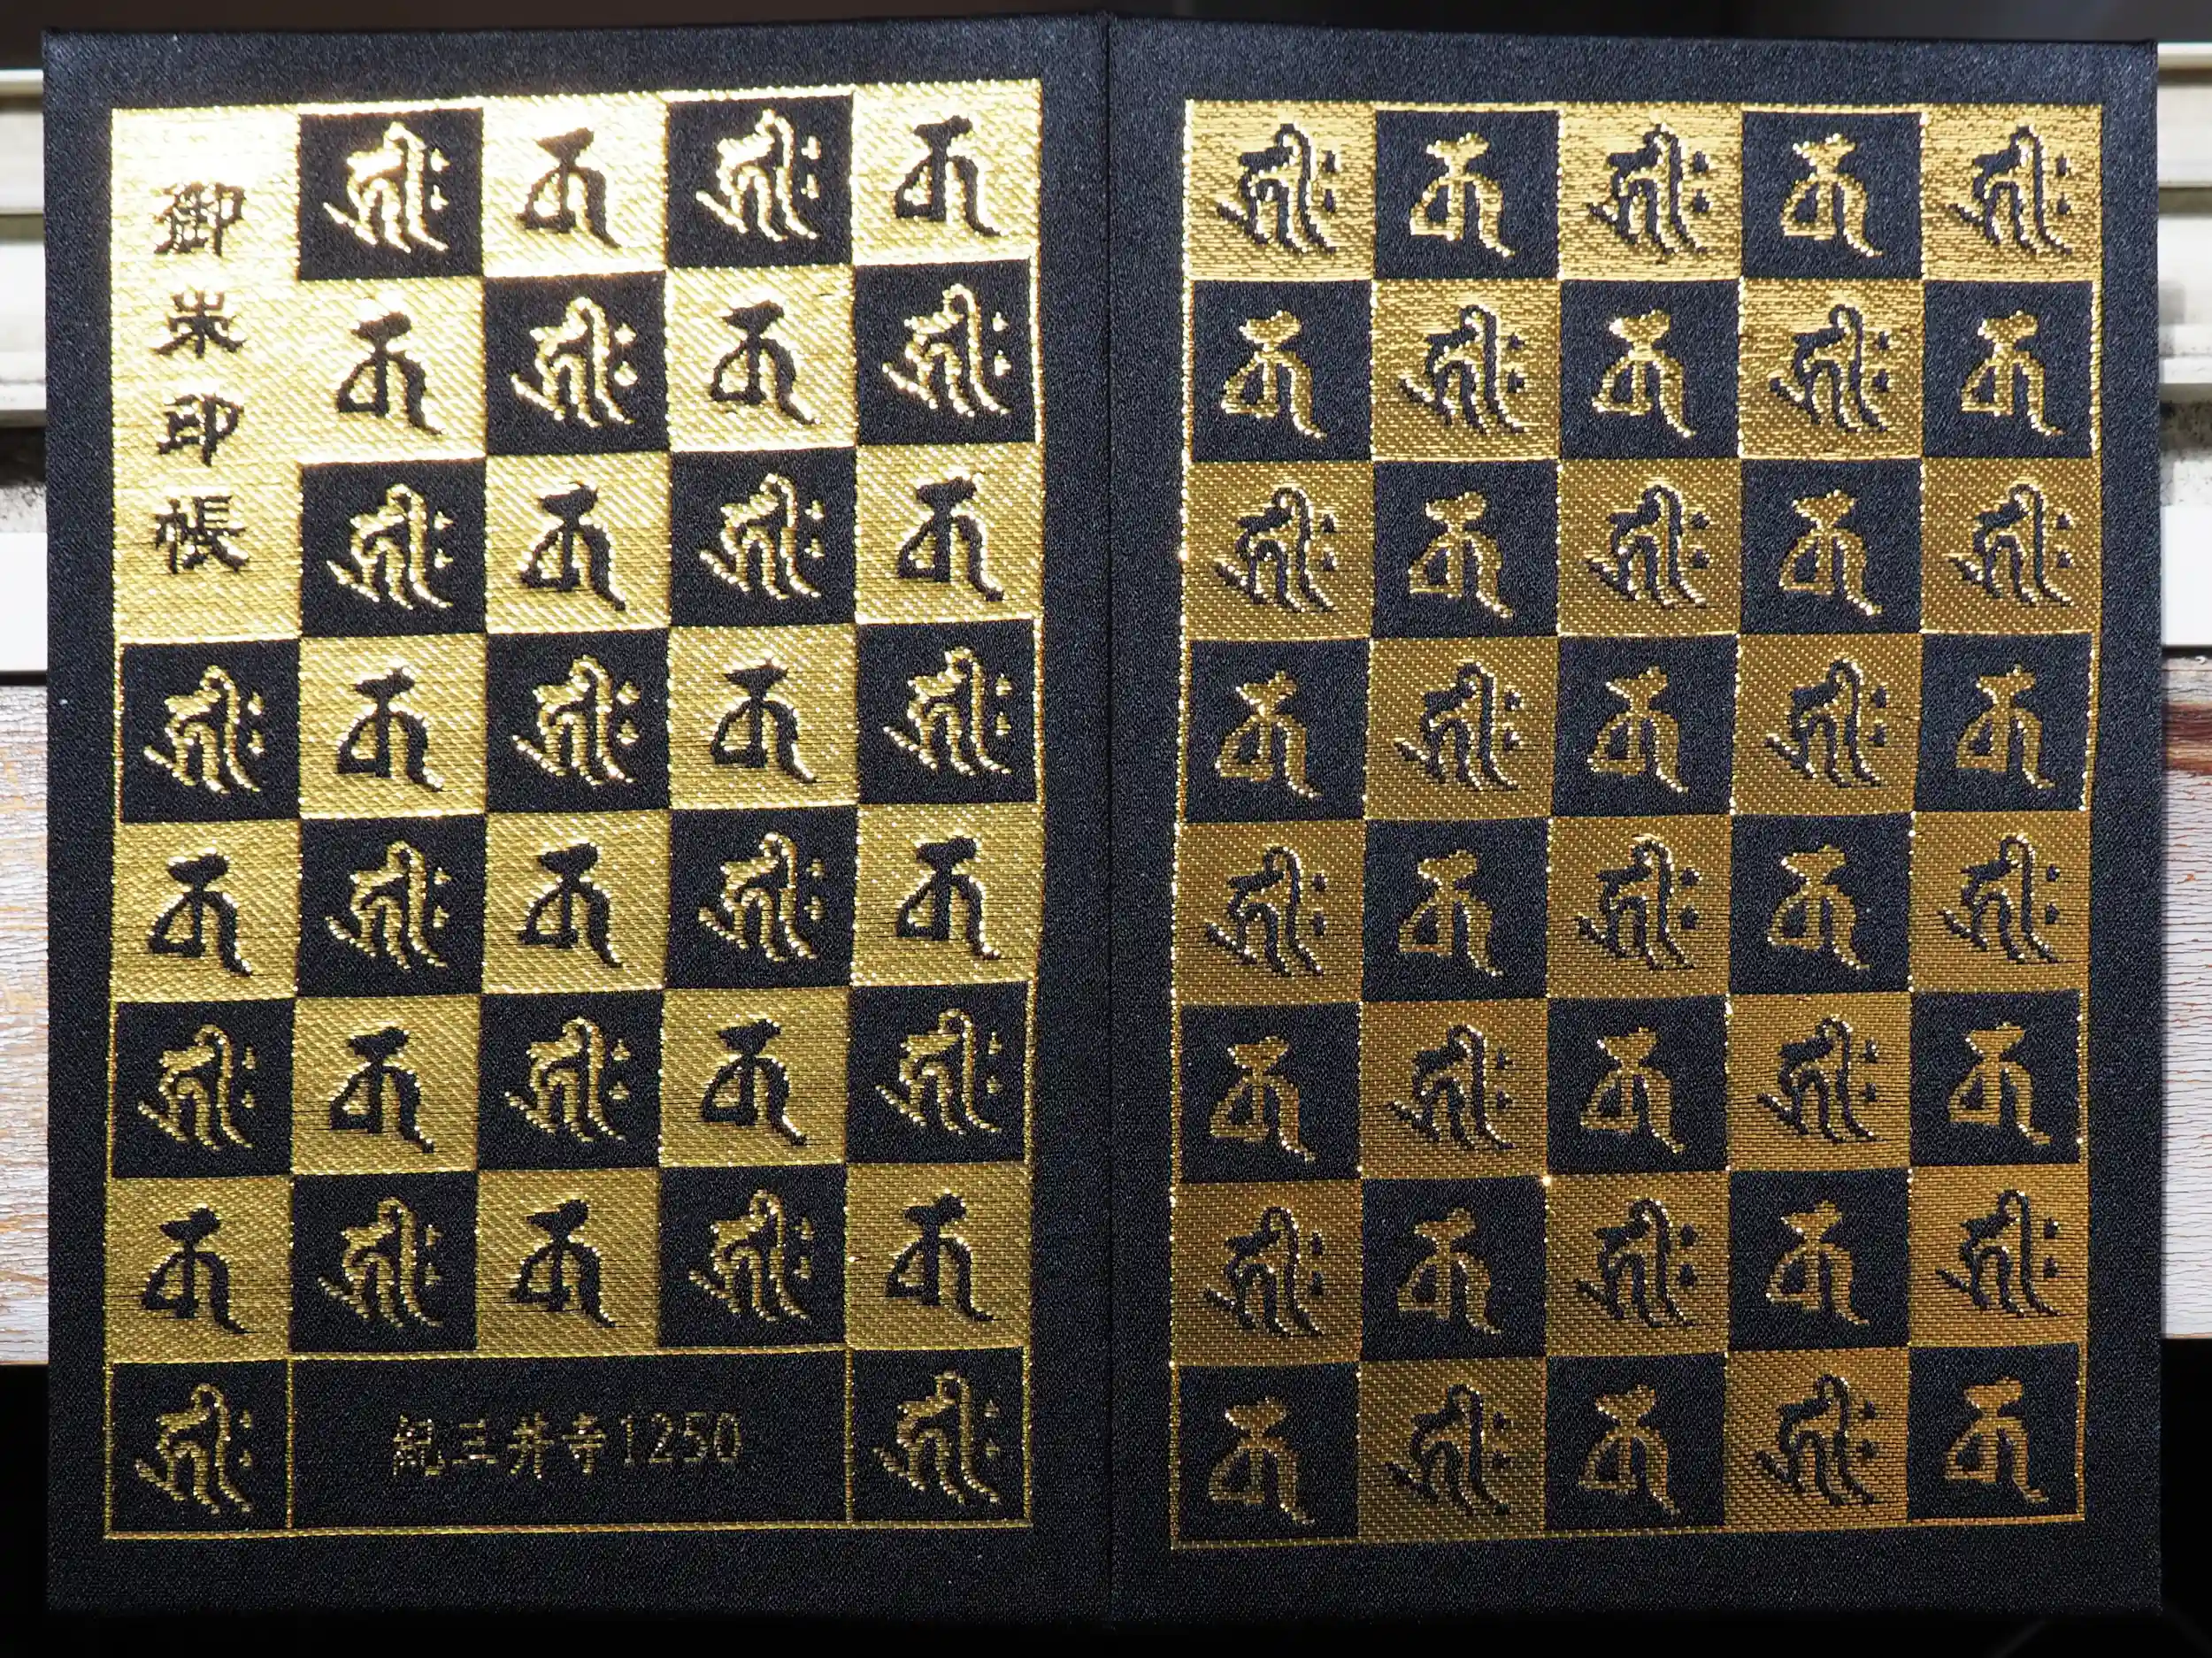 御朱印帳
𑖮𑖿𑖨𑖱𑖾 𑖎 𑖮𑖿𑖨𑖱𑖾 𑖎
𑖎 𑖮𑖿𑖨𑖱𑖾 𑖎 𑖮𑖿𑖨𑖱𑖾
𑖮𑖿𑖨𑖱𑖾 𑖎 𑖮𑖿𑖨𑖱𑖾 𑖎
𑖮𑖿𑖨𑖱𑖾 𑖎 𑖮𑖿𑖨𑖱𑖾 𑖎 𑖮𑖿𑖨𑖱𑖾
𑖎 𑖮𑖿𑖨𑖱𑖾 𑖎 𑖮𑖿𑖨𑖱𑖾 𑖎
𑖮𑖿𑖨𑖱𑖾 𑖎 𑖮𑖿𑖨𑖱𑖾 𑖎 𑖮𑖿𑖨𑖱𑖾
𑖎 𑖮𑖿𑖨𑖱𑖾 𑖎 𑖮𑖿𑖨𑖱𑖾 𑖎
𑖮𑖿𑖨𑖱𑖾 紀三井寺1250 𑖮𑖿𑖨𑖱𑖾
𑖮𑖿𑖨𑖱𑖾 𑖎 𑖮𑖿𑖨𑖱𑖾 𑖎 𑖮𑖿𑖨𑖱𑖾
𑖎 𑖮𑖿𑖨𑖱𑖾 𑖎 𑖮𑖿𑖨𑖱𑖾 𑖎
𑖮𑖿𑖨𑖱𑖾 𑖎 𑖮𑖿𑖨𑖱𑖾 𑖎 𑖮𑖿𑖨𑖱𑖾
𑖎 𑖮𑖿𑖨𑖱𑖾 𑖎 𑖮𑖿𑖨𑖱𑖾 𑖎
𑖮𑖿𑖨𑖱𑖾 𑖎 𑖮𑖿𑖨𑖱𑖾 𑖎 𑖮𑖿𑖨𑖱𑖾
𑖎 𑖮𑖿𑖨𑖱𑖾 𑖎 𑖮𑖿𑖨𑖱𑖾 𑖎
𑖮𑖿𑖨𑖱𑖾 𑖎 𑖮𑖿𑖨𑖱𑖾 𑖎 𑖮𑖿𑖨𑖱𑖾
𑖎 𑖮𑖿𑖨𑖱𑖾 𑖎 𑖮𑖿𑖨𑖱𑖾 𑖎